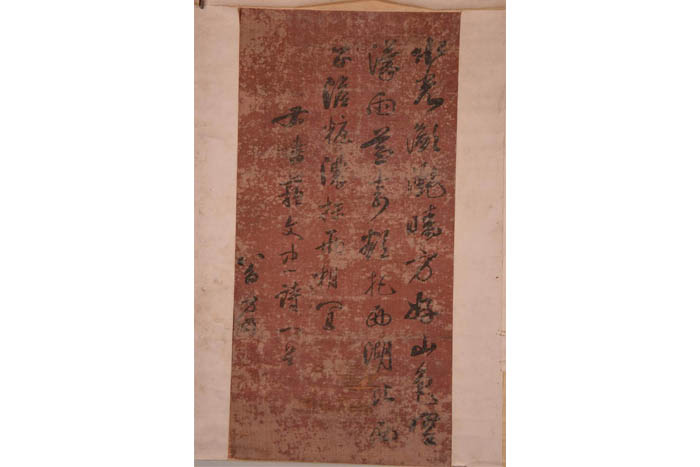 水光瀲灧晴方好山色空
濛雨亦奇欲把西湖比西
子淡粧濃抹總相宜
書蘇文忠詩
翁方綱